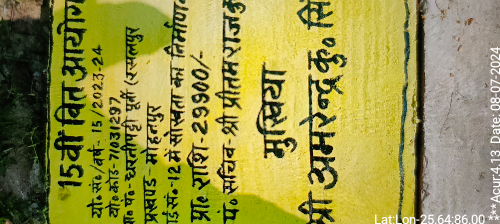 15वीं वित आयोग
यो० सं०/वर्ष- 15/2023-24
यो० कोड- 71031297
ग्रा० पं०- धरनीपट्टी पूर्वी (रसलपुर
प्रखण्ड- मोहनपुर
सं०-12 में सोख्ता का निर्माण
प्रा० राशि- 29900/-
पं० सचिव- श्री प्रीतम राज कु
मुखिया
श्री अमरेन्द्र कु० सिं
Lat:Lon-25.64:86.00
Acur:4.13 Date:08-07-2024